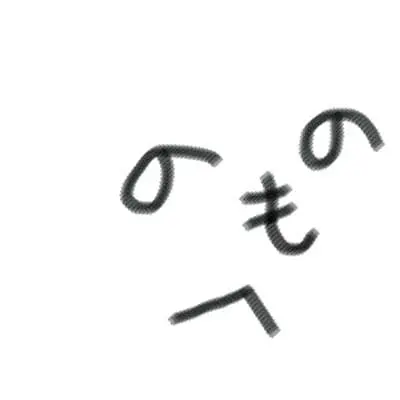 のの
も
へ